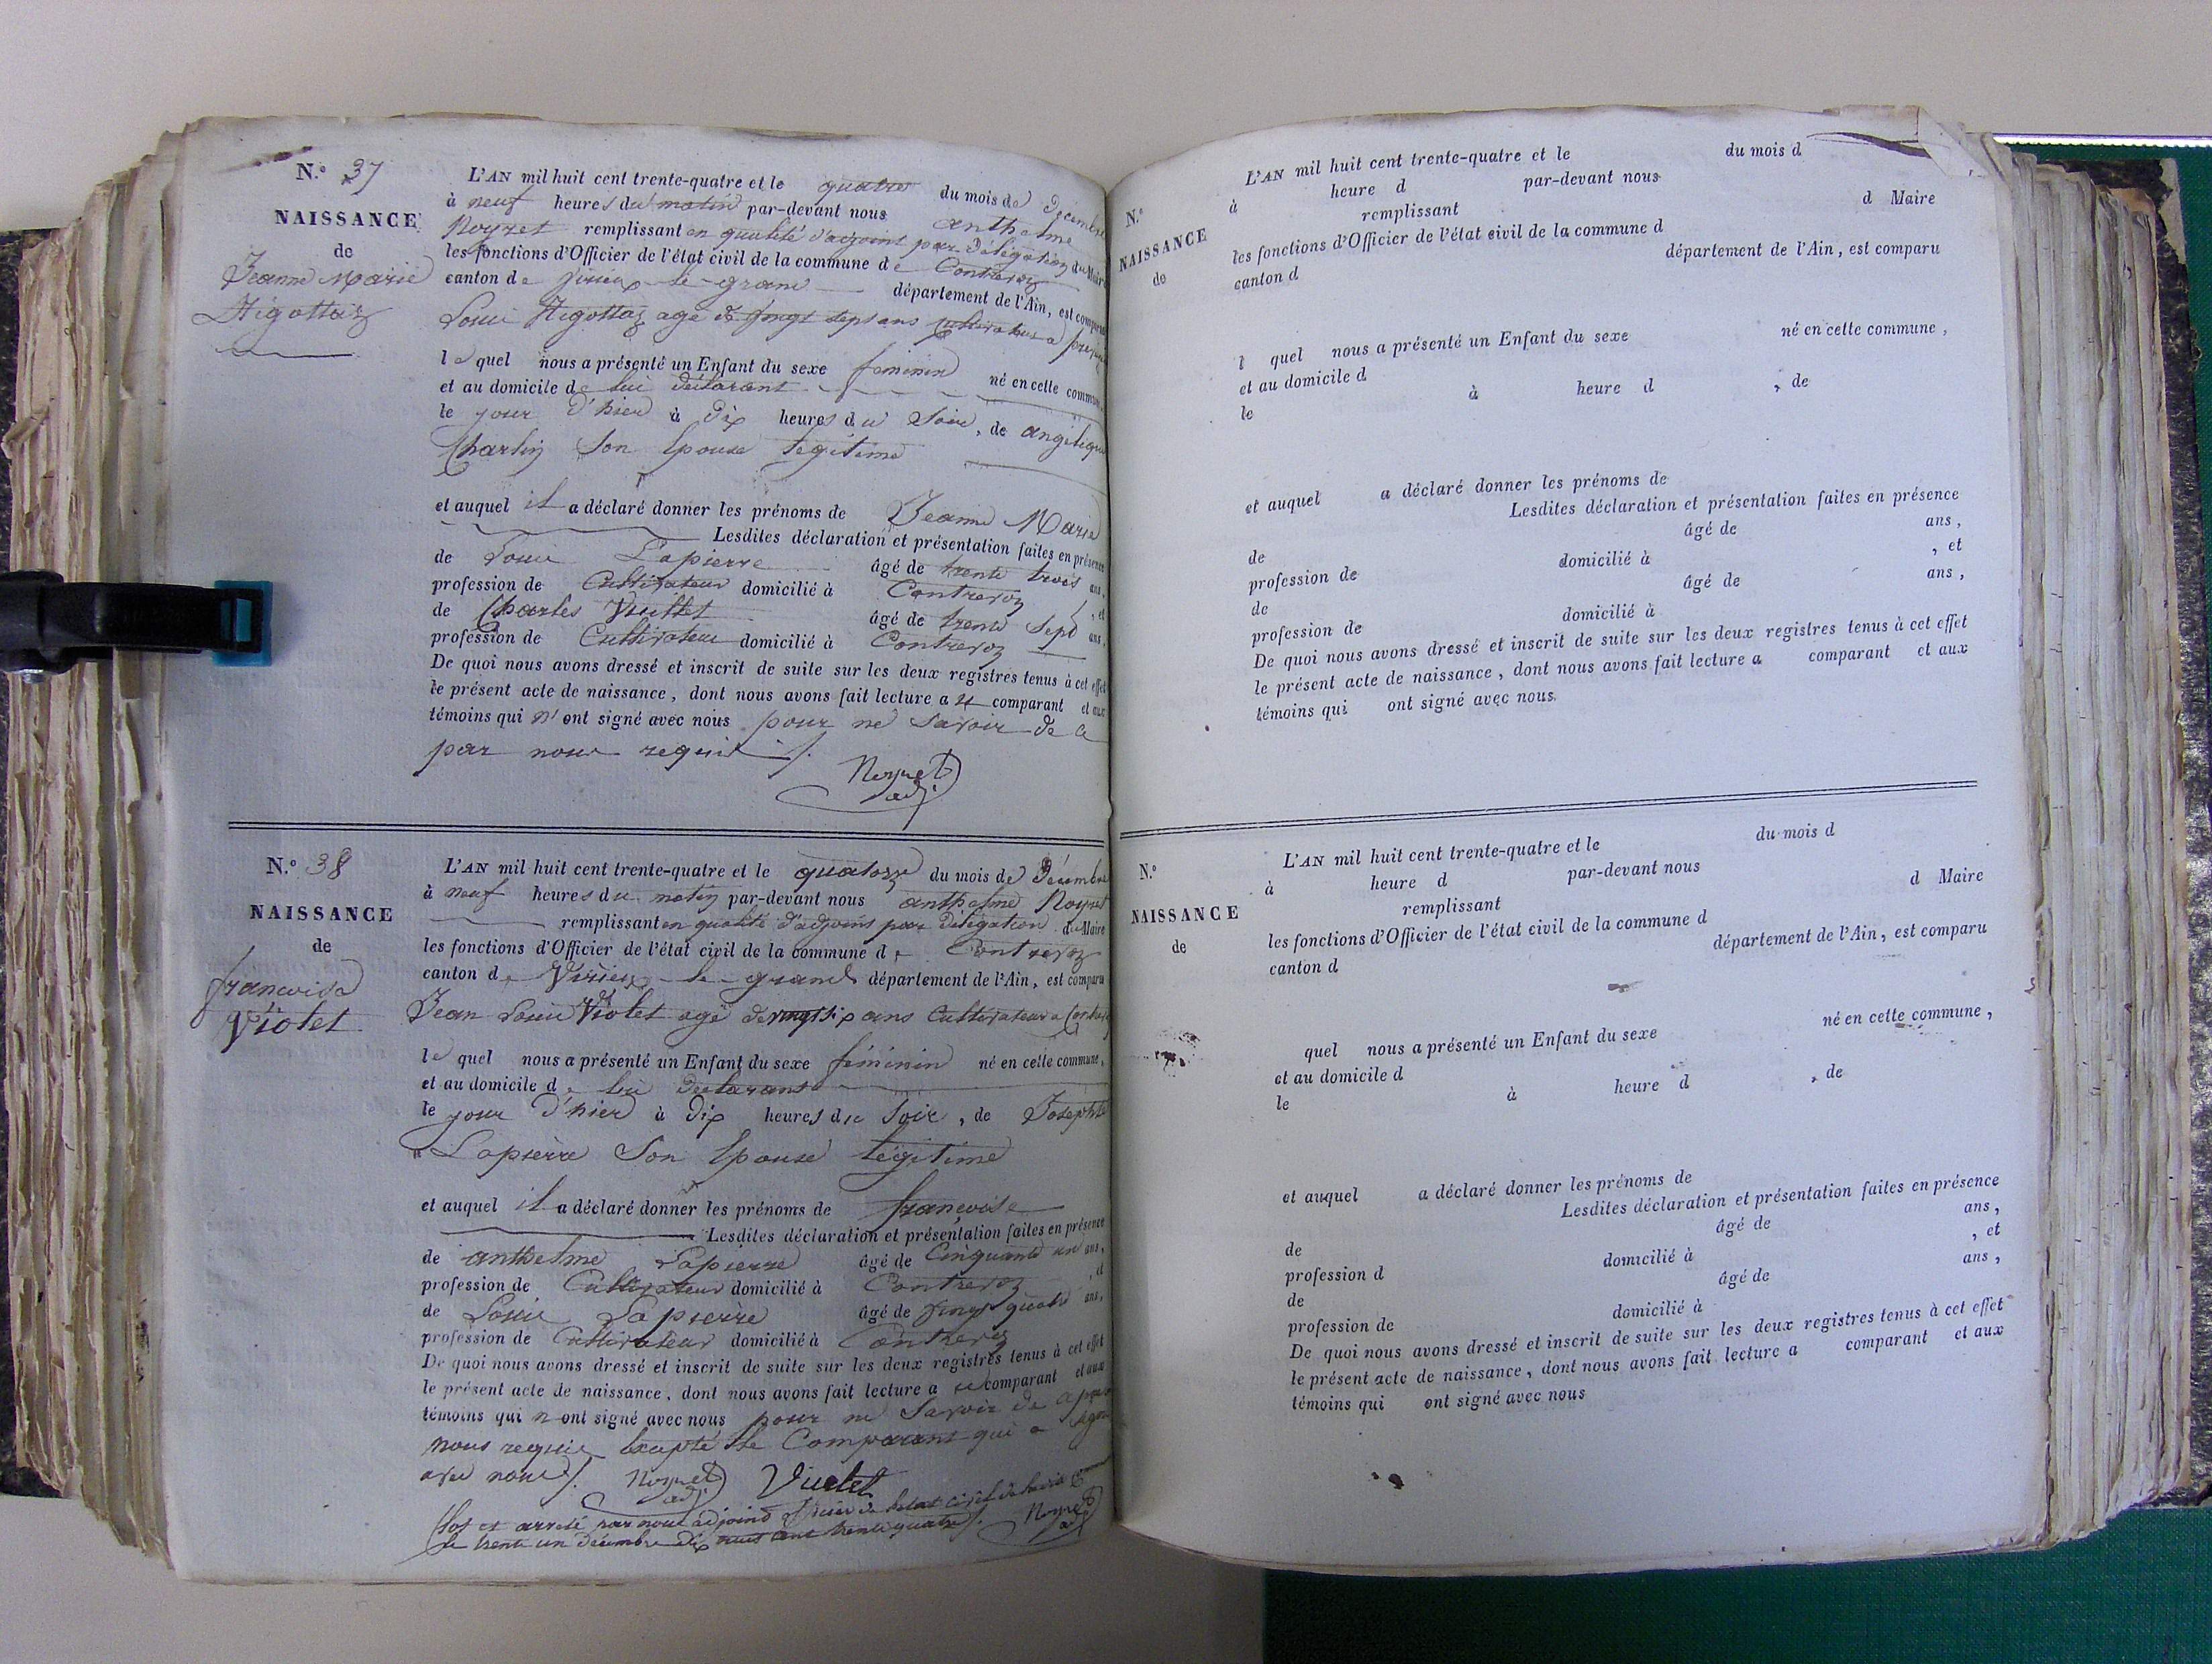 N.° 37
NAISSANCE
de
Jeanne Marie
Higottaz
L'AN mil huit cent trente-quatre et le quatre du mois de Décembre
à neuf heures du matin par-devant nous anthelme
Noyret remplissant en qualité d'adjoint par délégation du Maire
les fonctions d'Officier de l'état civil de la commune de Contrevoz
canton de Virieux-le-grand département de l'Ain, est comparu
Louis Higottaz agé de vingt sept ans Cultivateur a
le quel nous a présenté un Enfant du sexe feminin né en cette commune,
et au domicile de lui déclarant
le jour d'hier à dix heures du Soir, de angelique
Charlin Son Epouse legitime
et auquel il a déclaré donner les prénoms de Jeanne Marie
Lesdites déclaration et présentation faites en présence
de Louis Lapierre âgé de trente trois ans,
profession de Cultivateur domicilié à Contrevoz, et
de Charles Vuillet âgé de trente Sept ans,
profession de Cultivateur domicilié à Contrevoz
De quoi nous avons dressé et inscrit de suite sur les deux registres tenus à cet effet
le présent acte de naissance, dont nous avons fait lecture au comparant et aux
témoins qui n'ont signé avec nous pour ne Savoir de ce
par nous requis
Noyret
adj.
N.° 38
NAISSANCE
de
francoise
Violet
L'AN mil huit cent trente-quatre et le quatorze du mois de Décembre
à neuf heures du matin par-devant nous anthelme Noyret
remplissant en qualité d'adjoint par délégation du Maire
les fonctions d'Officier de l'état civil de la commune de Contrevoz
canton de Virieux-le-grand département de l'Ain, est comparu
Jean Louis Violet agé de vingt six ans Cultivateur a
le quel nous a présenté un Enfant du sexe féminin né en cette commune,
et au domicile de lui déclarant
le jour d'hier à dix heures du Soir, de Josephte
Lapierre Son Epouse légitime
et auquel il a déclaré donner les prénoms de françoise
Lesdites déclaration et présentation faites en présence
de anthelme Lapierre âgé de Cinquante un ans,
profession de Cultivateur domicilié à Contrevoz, et
de Louis Lapierre âgé de vingt quatre ans,
profession de Cultivateur domicilié à Contrevoz
De quoi nous avons dressé et inscrit de suite sur les deux registres tenus à cet effet
le présent acte de naissance, dont nous avons fait lecture au comparant et aux
témoins qui n'ont signé avec nous pour ne Savoir de ce par
nous requis Excepté le Comparant qui a signé
avec nous
Noyret Viollet
adj.
Clos et arrêté par nous adjoint officier de l'état civil
le trente un décembre dix huit cent trente quatre Noyret
N.°
NAISSANCE
de
L'AN mil huit cent trente-quatre et le du mois d
à heure d par-devant nous
remplissant d Maire
les fonctions d'Officier de l'état civil de la commune d
canton d département de l'Ain, est comparu
l quel nous a présenté un Enfant du sexe né en cette commune,
et au domicile d
le à heure d , de
et auquel a déclaré donner les prénoms de
Lesdites déclaration et présentation faites en présence
de âgé de ans,
profession de domicilié à , et
de âgé de ans,
profession de domicilié à
De quoi nous avons dressé et inscrit de suite sur les deux registres tenus à cet effet
le présent acte de naissance, dont nous avons fait lecture a comparant et aux
témoins qui ont signé avec nous.
N.°
NAISSANCE
de
L'AN mil huit cent trente-quatre et le du mois d
à heure d par-devant nous
remplissant d Maire
les fonctions d'Officier de l'état civil de la commune d
canton d département de l'Ain, est comparu
quel nous a présenté un Enfant du sexe né en cette commune,
et au domicile d
le à heure d , de
et auquel a déclaré donner les prénoms de
Lesdites déclaration et présentation faites en présence
de âgé de ans,
profession d domicilié à , et
de âgé de ans,
profession de domicilié à
De quoi nous avons dressé et inscrit de suite sur les deux registres tenus à cet effet
le présent acte de naissance, dont nous avons fait lecture a comparant et aux
témoins qui ont signé avec nous